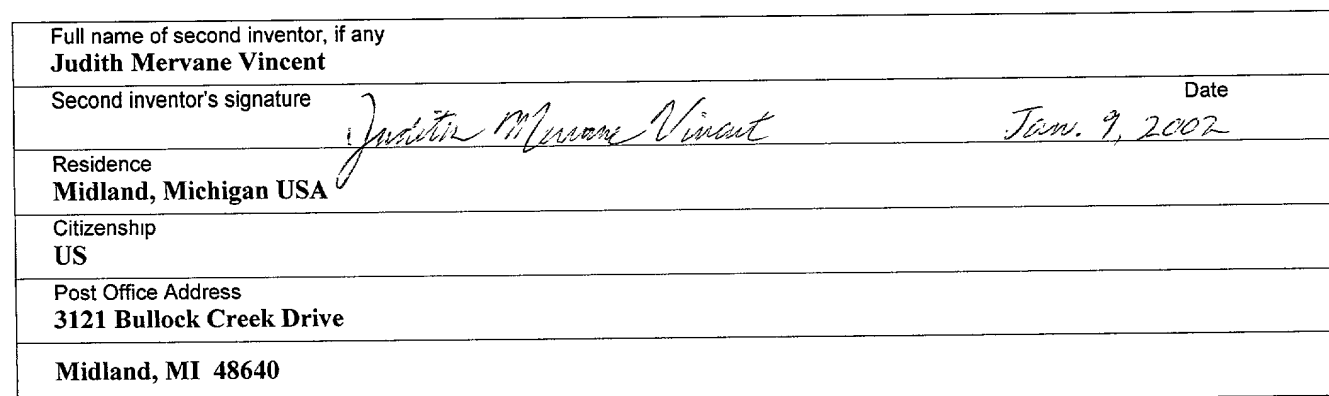 Full name of second inventor, if any
Judith Mervane Vincent
Second inventor's signature Judith Mervane Vincent Date Jan. 9, 2002
Residence
Midland, Michigan USA
Citizenship
US
Post Office Address
3121 Bullock Creek Drive
Midland, MI 48640